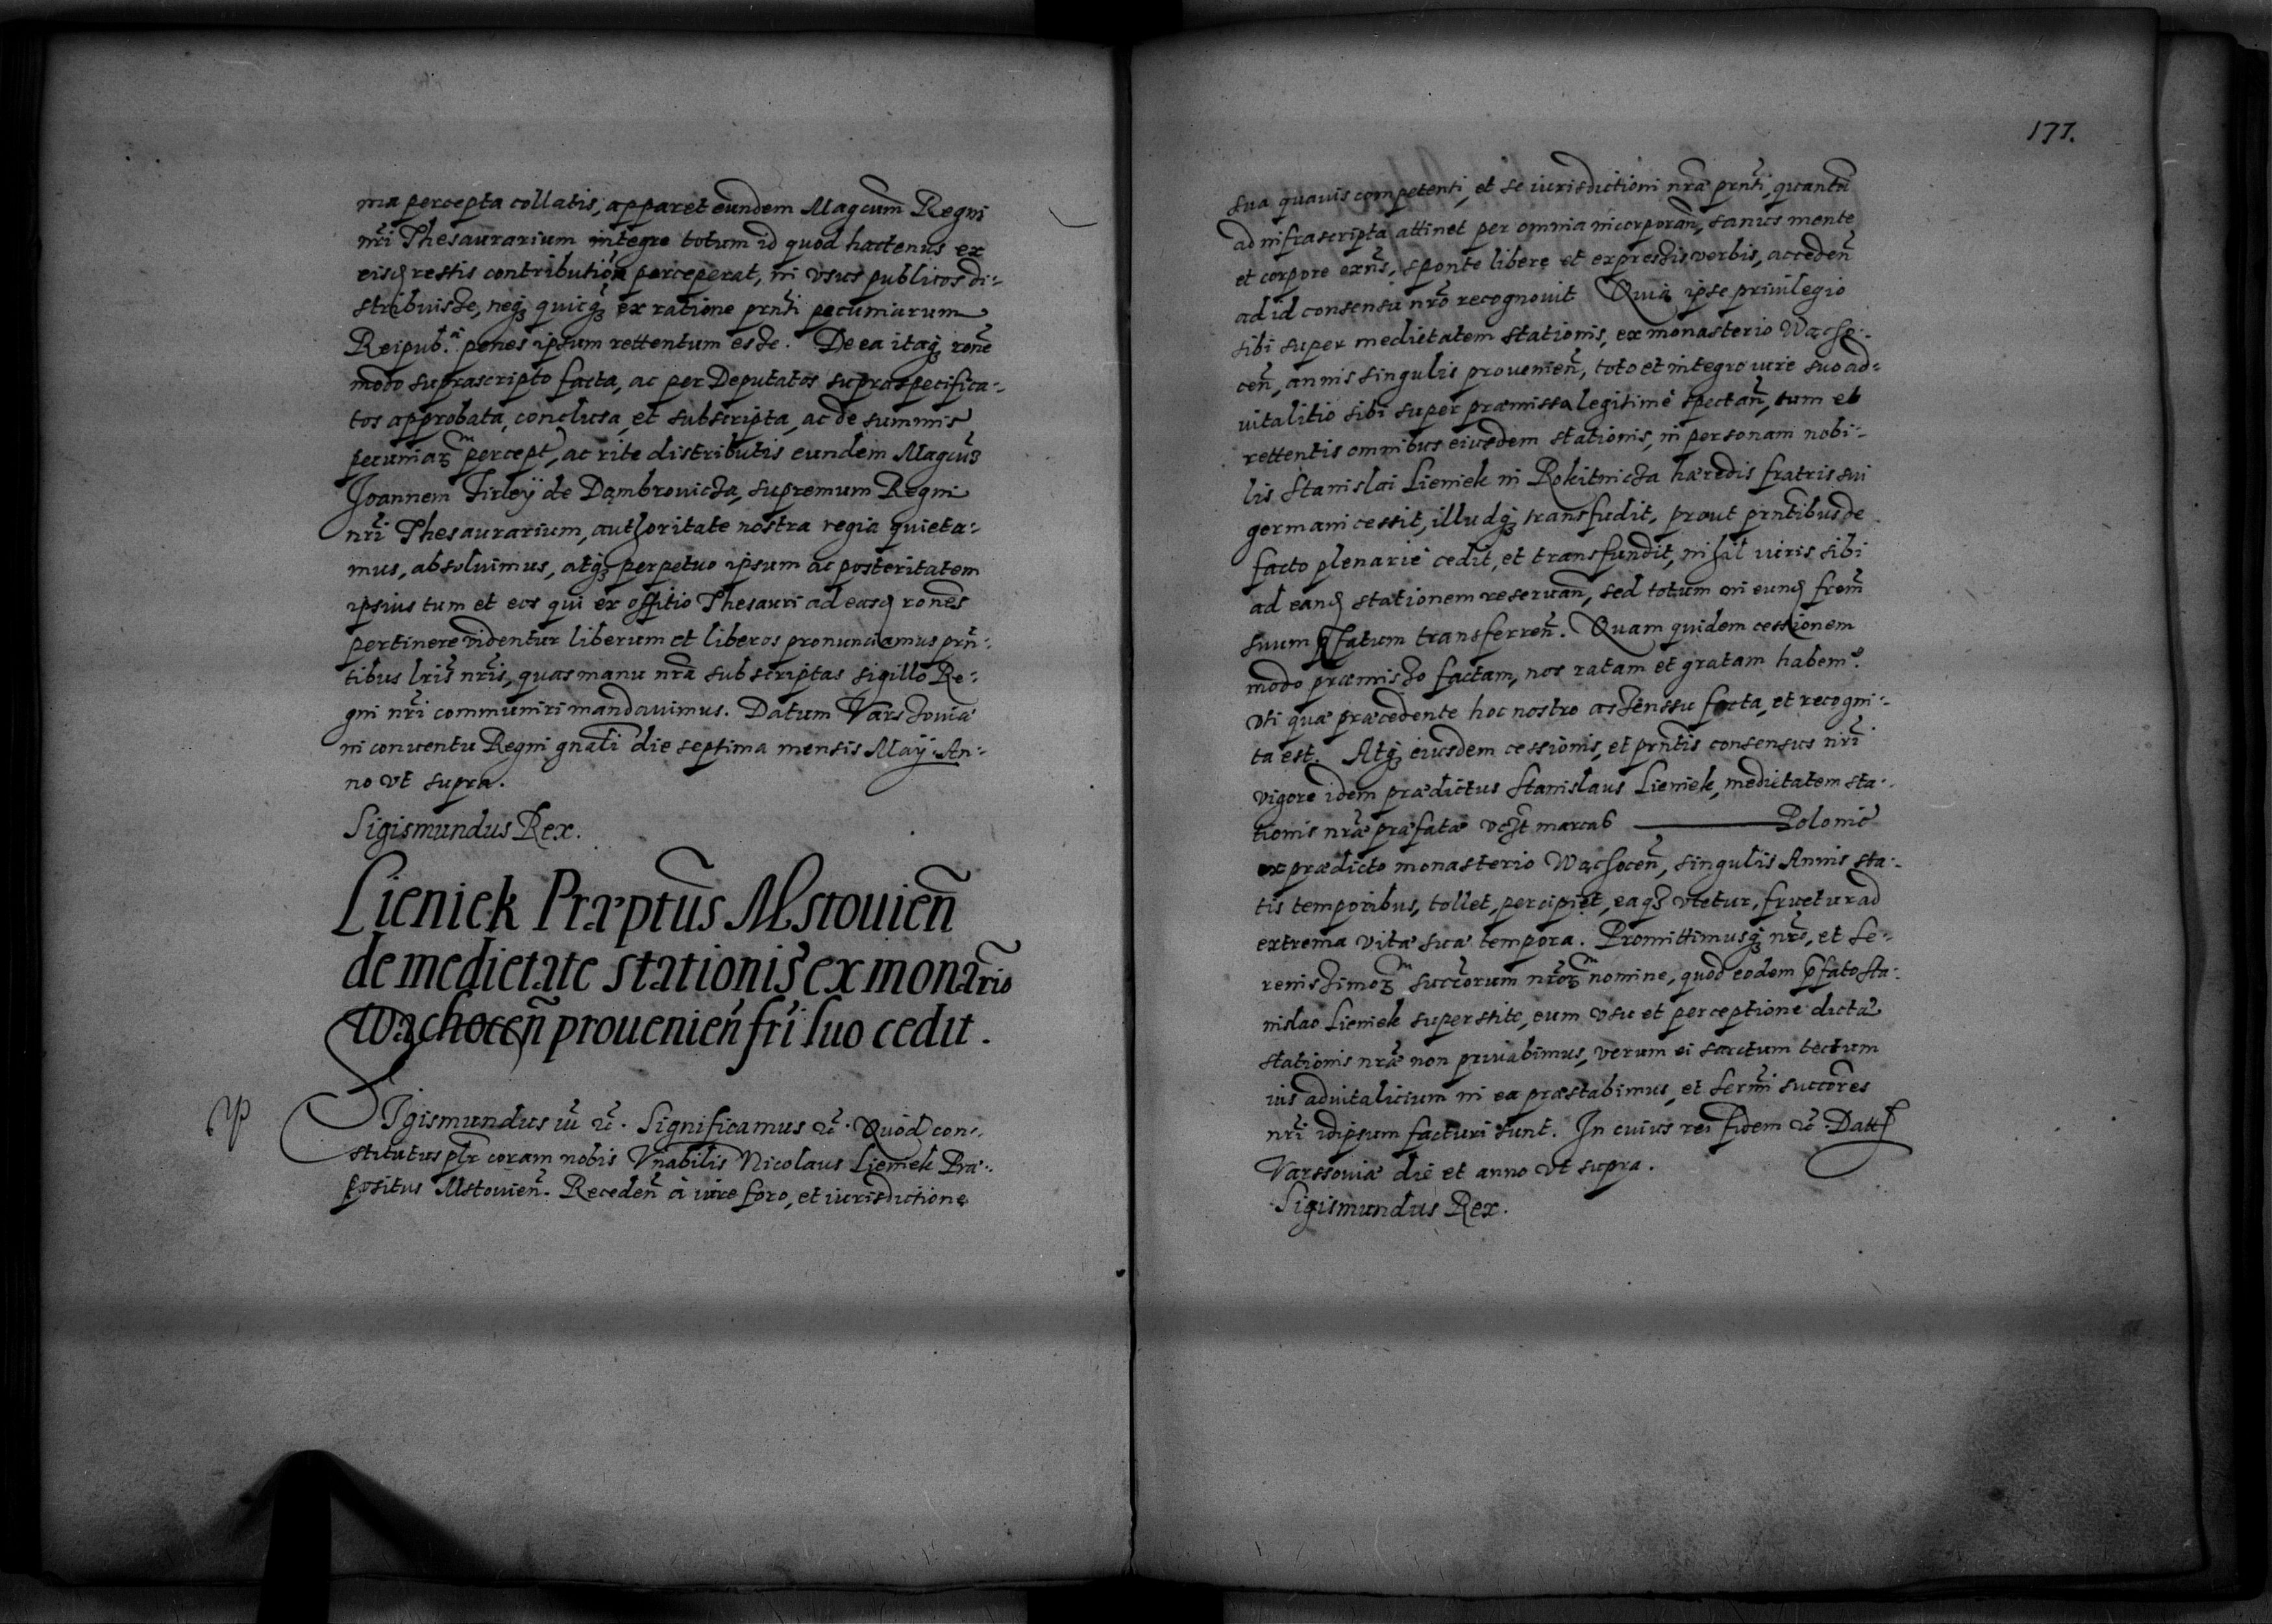 ma percepta collatis, apparet eundem Magcum Regni
nri Thesaurarium integre totum id quod hactenus ex
eisd restis contribution perceperat, in vsus publicos di-
stribuisse, neq quicq ex ratione prnti pecuniarum
Reipub. penes ipsum rettentum esse. De ea itaq rone
modo suprascripto facta, ac per Deputatos supraspecifica-
tos approbata, conclusa, et subscripta, ac de summis
pecuniar percept, ac rite distributis eundem Magcum
Joannem Firleÿ de Dąmbrouicza, supremum Regni
nri Thesaurarium, authoritate nostra regia quieta-
mus, absoluimus, atq perpetuo ipsum ac posteritatem
ipsius tum et eos qui ex offitio Thesauri ad easd rones
pertinere videntur liberum et liberos pronunciamus prn-
tibus lris nris, quas manu nra subscriptas sigillo Re-
gni nri communiri mandauimus. Datum Varssouiæ
in conuentu Regni gnali die septima mensis Maÿ. An-
no vt supra.
Sigismundus Rex.
Lieniek Præptus Mstouien
de medietate stationis ex monario
Wąchocen prouenien fri suo cedit.
SJgismundus iii etc. Significamus etc. Quod con-
stitutus plr coram nobis Vnabilis Nicolaus Lieniek Præ-
positus Mstouien. Receden à iure foro, et iurisdictione
177.
sua quauis competenti, et se iurisdictioni nræ prnti, quantu
ad infrascripta attinet per omnia incorporan, sanus mente
et corpore exns, sponte libere et expressis verbis, acceden
ad id consensu nro recognouit Quia ipse priuilegio
sibi super medietatem stationis, ex monasterio Wącho-
cen, annis singulis prouenien, toto et integro iure suo ad-
uitalitio sibi super præmissa legitime spectan, tum et
rettentis omnibus eiusdem stationis, in personam nobi-
lis Stanislai Lieniek in Rokitnicza hæredis fratris sui
germani cessit, illudq transfudit, prout prntibus de
facto plenarie cedit, et transfundit, nihil iuris sibi
ad eand stationem reseruan, sed totum in eund frem
suum pfatum transferren. Quam quidem cessionem
modo præmisso factam, nos ratam et gratam habem9.
vti quæ præcedente hoc nostro assenssu facta, et recogni-
ta est. Atq eiusdem cessionis, et prntis consensus nri
vigore idem prædictus Stanislaus Lieniek, medietatem sta-
tionis nræ præfatæ marcas Polonic
ex prædicto monasterio Wąchocen, singulis Annis sta-
tis temporibus, tollet, percipiet, eaq vtetur, fruetur ad
extrema vitæ suæ tempora. Promittimusq nro, et Se-
renissimor succorum nror nomine, quod eodem pfato Sta-
nislao Lieniek superstite, eum vsu et perceptione dictæ
stationis nræ non priuabimus, verum ei sarctum tectum
ius aduitalicium in ea præstabimus, et Sermi succores
nri idipsum facturi sunt. In cuius rei fidem etc. Datt
Varssouiæ die et anno vt supra.
Sigismundus Rex.